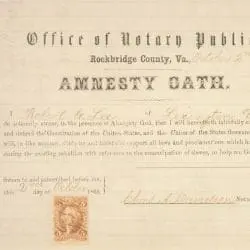 Office of Notary Public
Rockbridge County, Va. October 2
AMNESTY OATH.
I Robert E. Lee of Lexington
do solemnly swear, in the presence of Almighty God, that I will henceforth faithfully
and defend the Constitution of the United States, and the Union of the States thereunder
will, in like manner, abide by and faithfully support all laws and proclamations which
during the existing rebellion with reference to the emancipation of slaves, so help me God
Sworn to and subscribed before me, this
2nd day October 1865
Chas. A. Davidson Nota